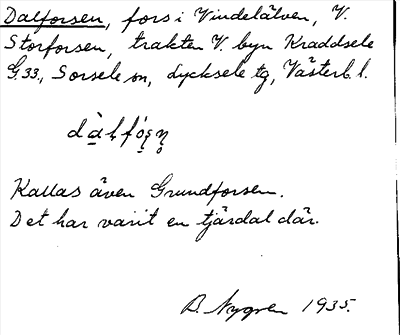 Dalforsen, fors i Vindelälven, V.
Storforsen, trakten V. byn Kraddsele
G.33, Sorsele sn, Lycksele tg, Västerb. l.
Kallas även Grundforsen.
Det har varit en tjärdal där.
B. Nygren 1935.